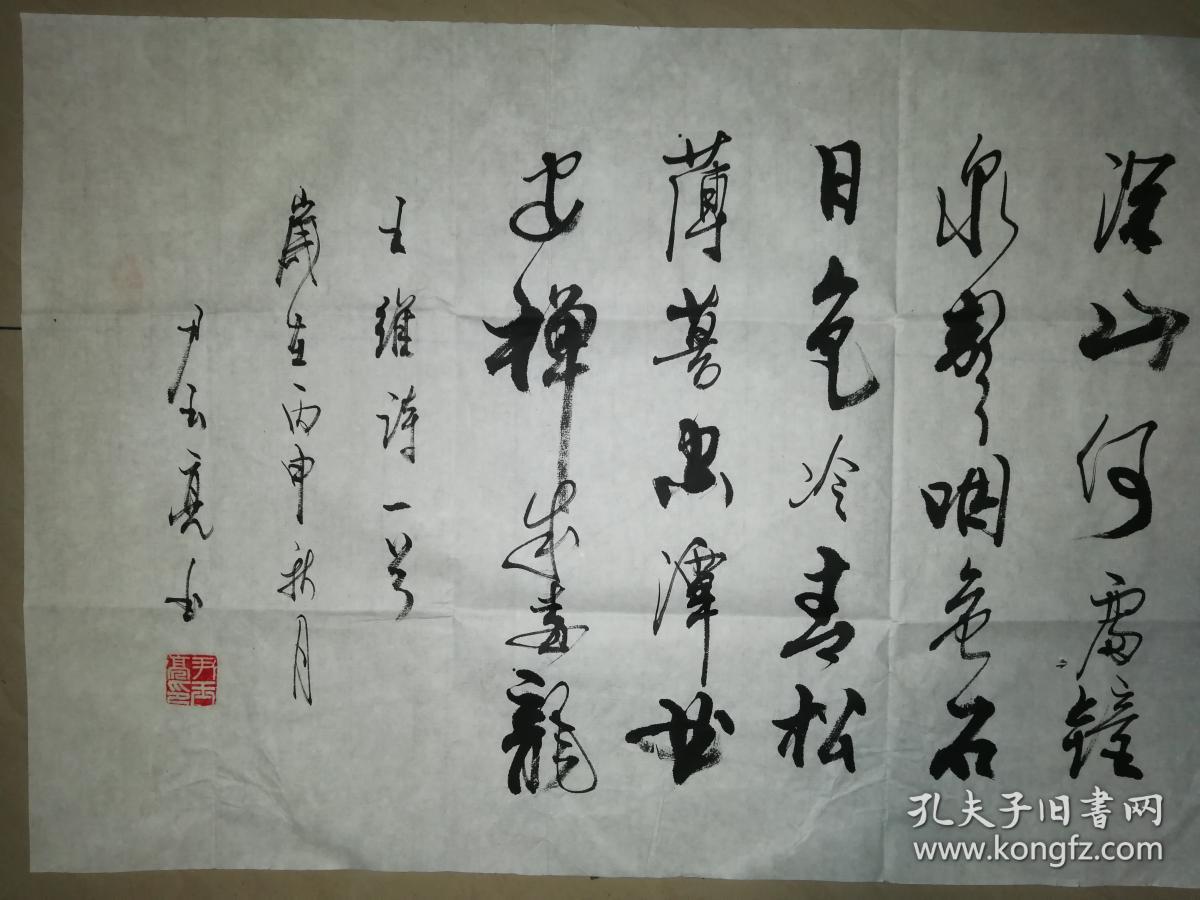 深山何處鐘
泉聲咽危石
日色冷青松
薄暮空潭曲
安禅制毒龍
王維诗一首
歲在丙申秋月
尹玉亮书
尹玉亮印
孔夫子旧書网
www.kongfz.com